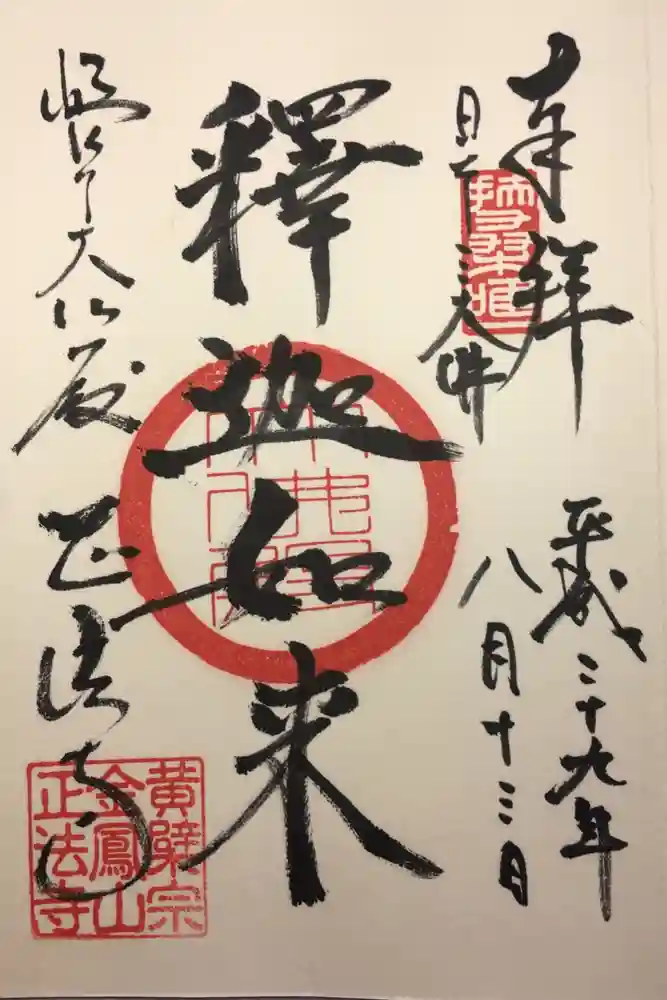 奉拝
平成二十九年
日本三大佛
八月十三日
釋迦如来
岐阜大仏殿 正法寺
黄檗宗
金鳳山
正法寺